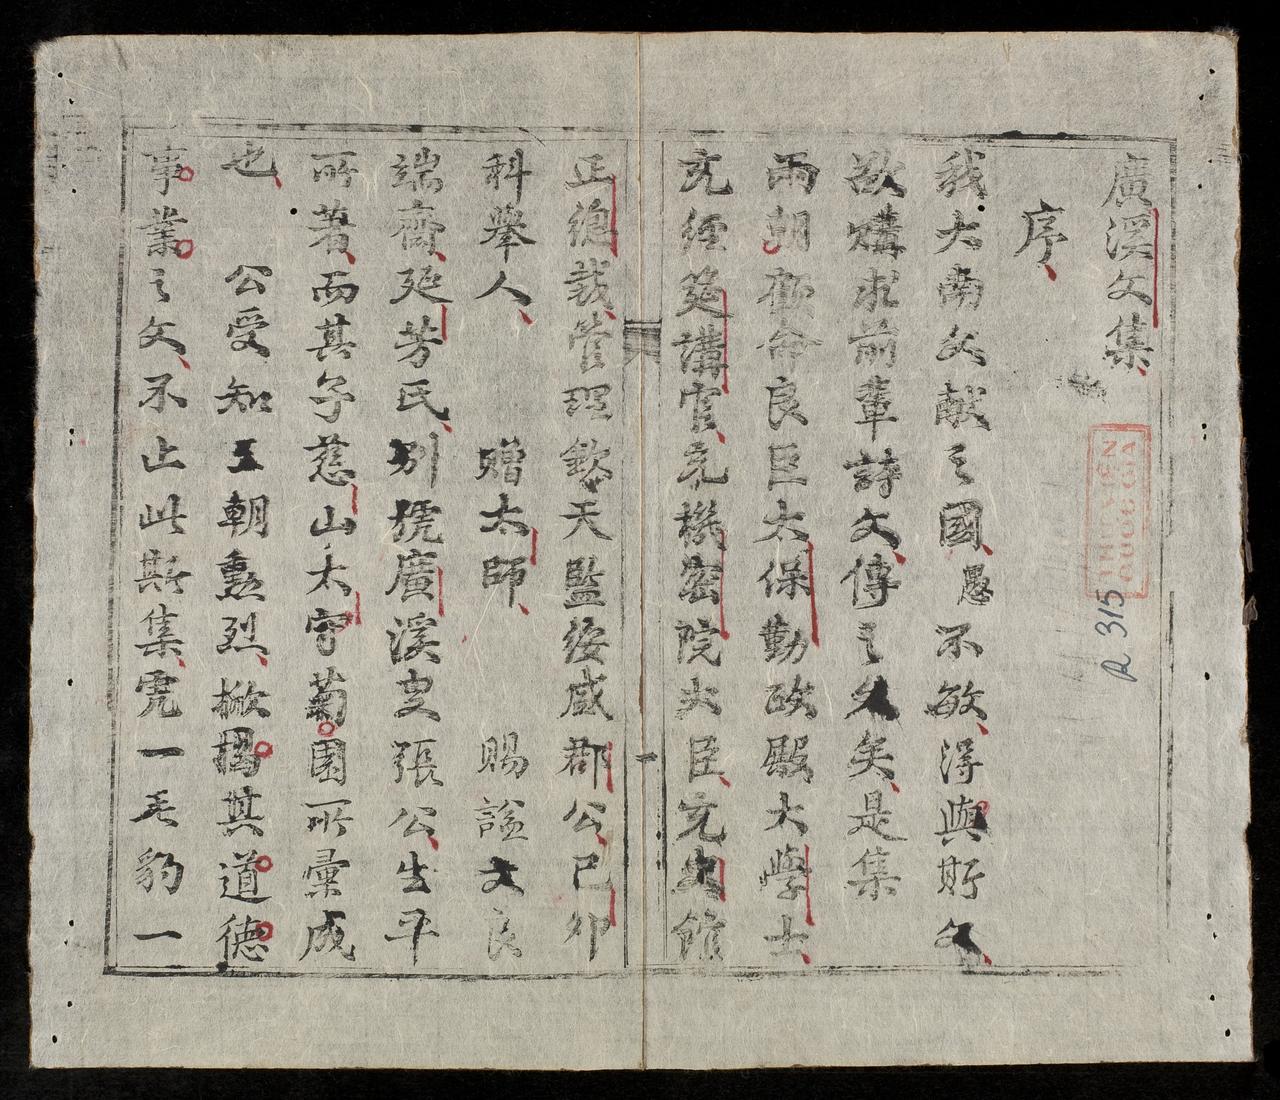 廣溪文集
序
我大南文献之國愚不敏淂與斯文
欲購求前輩詩文傳之久矣是集
兩朝顧命良臣太保勤政殿大學士
充經筵講官充機密院大臣充史館
正總裁管理欽天監綏盛郡公己卯
科舉人 贈太師 賜謚文良
端齋延芳氏別號廣溪叟張公生平
所著而其子慈山太守菊園所彙成
也 公受知五朝勳烈掀揭其道德
事業之文不止此斯集霓一毛豹一
一
THU VIEN
QUOC GIA
R 315